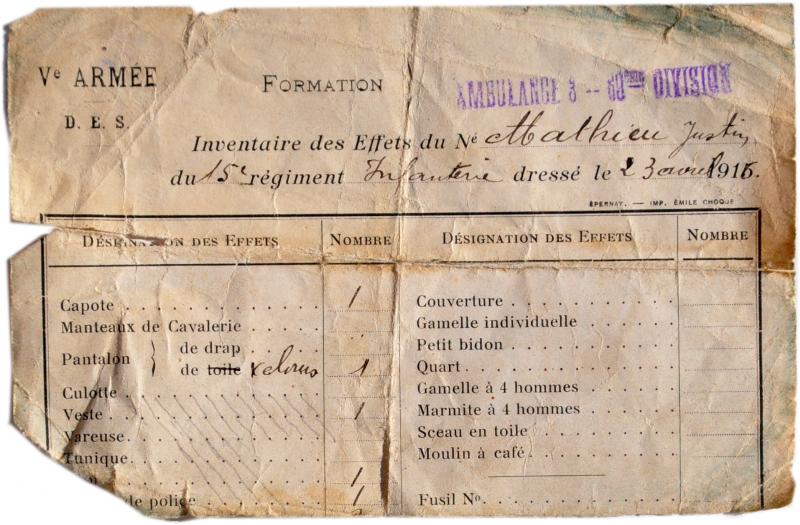 Vᵉ ARMÉE
FORMATION
AMBULANCE 3 -- 60ème DIVISION
D. E. S.
Inventaire des Effets du Né Mathieu Justin
du 15e régiment Infanterie dressé le 23 avril 1915.
ÉPERNAY. — IMP. ÉMILE CHOQUE
DÉSIGNATION DES EFFETS NOMBRE DÉSIGNATION DES EFFETS NOMBRE
Capote . . . . . . . . . . . 1 Couverture . . . . . . . . . .
Manteaux de Cavalerie . . . . Gamelle individuelle . . . . .
Pantalon } de drap . . . . . Petit bidon . . . . . . . . . .
de toile velours 1 Quart . . . . . . . . . . . .
Culotte . . . . . . . . . . . Gamelle à 4 hommes . . . . .
Veste . . . . . . . . . . . 1 Marmite à 4 hommes . . . . .
Vareuse . . . . . . . . . . . Sceau en toile . . . . . . . .
Tunique . . . . . . . . . . . Moulin à café . . . . . . . . .
1
de police . . . . . . . . . 1 Fusil No . . . . . . . . . . .